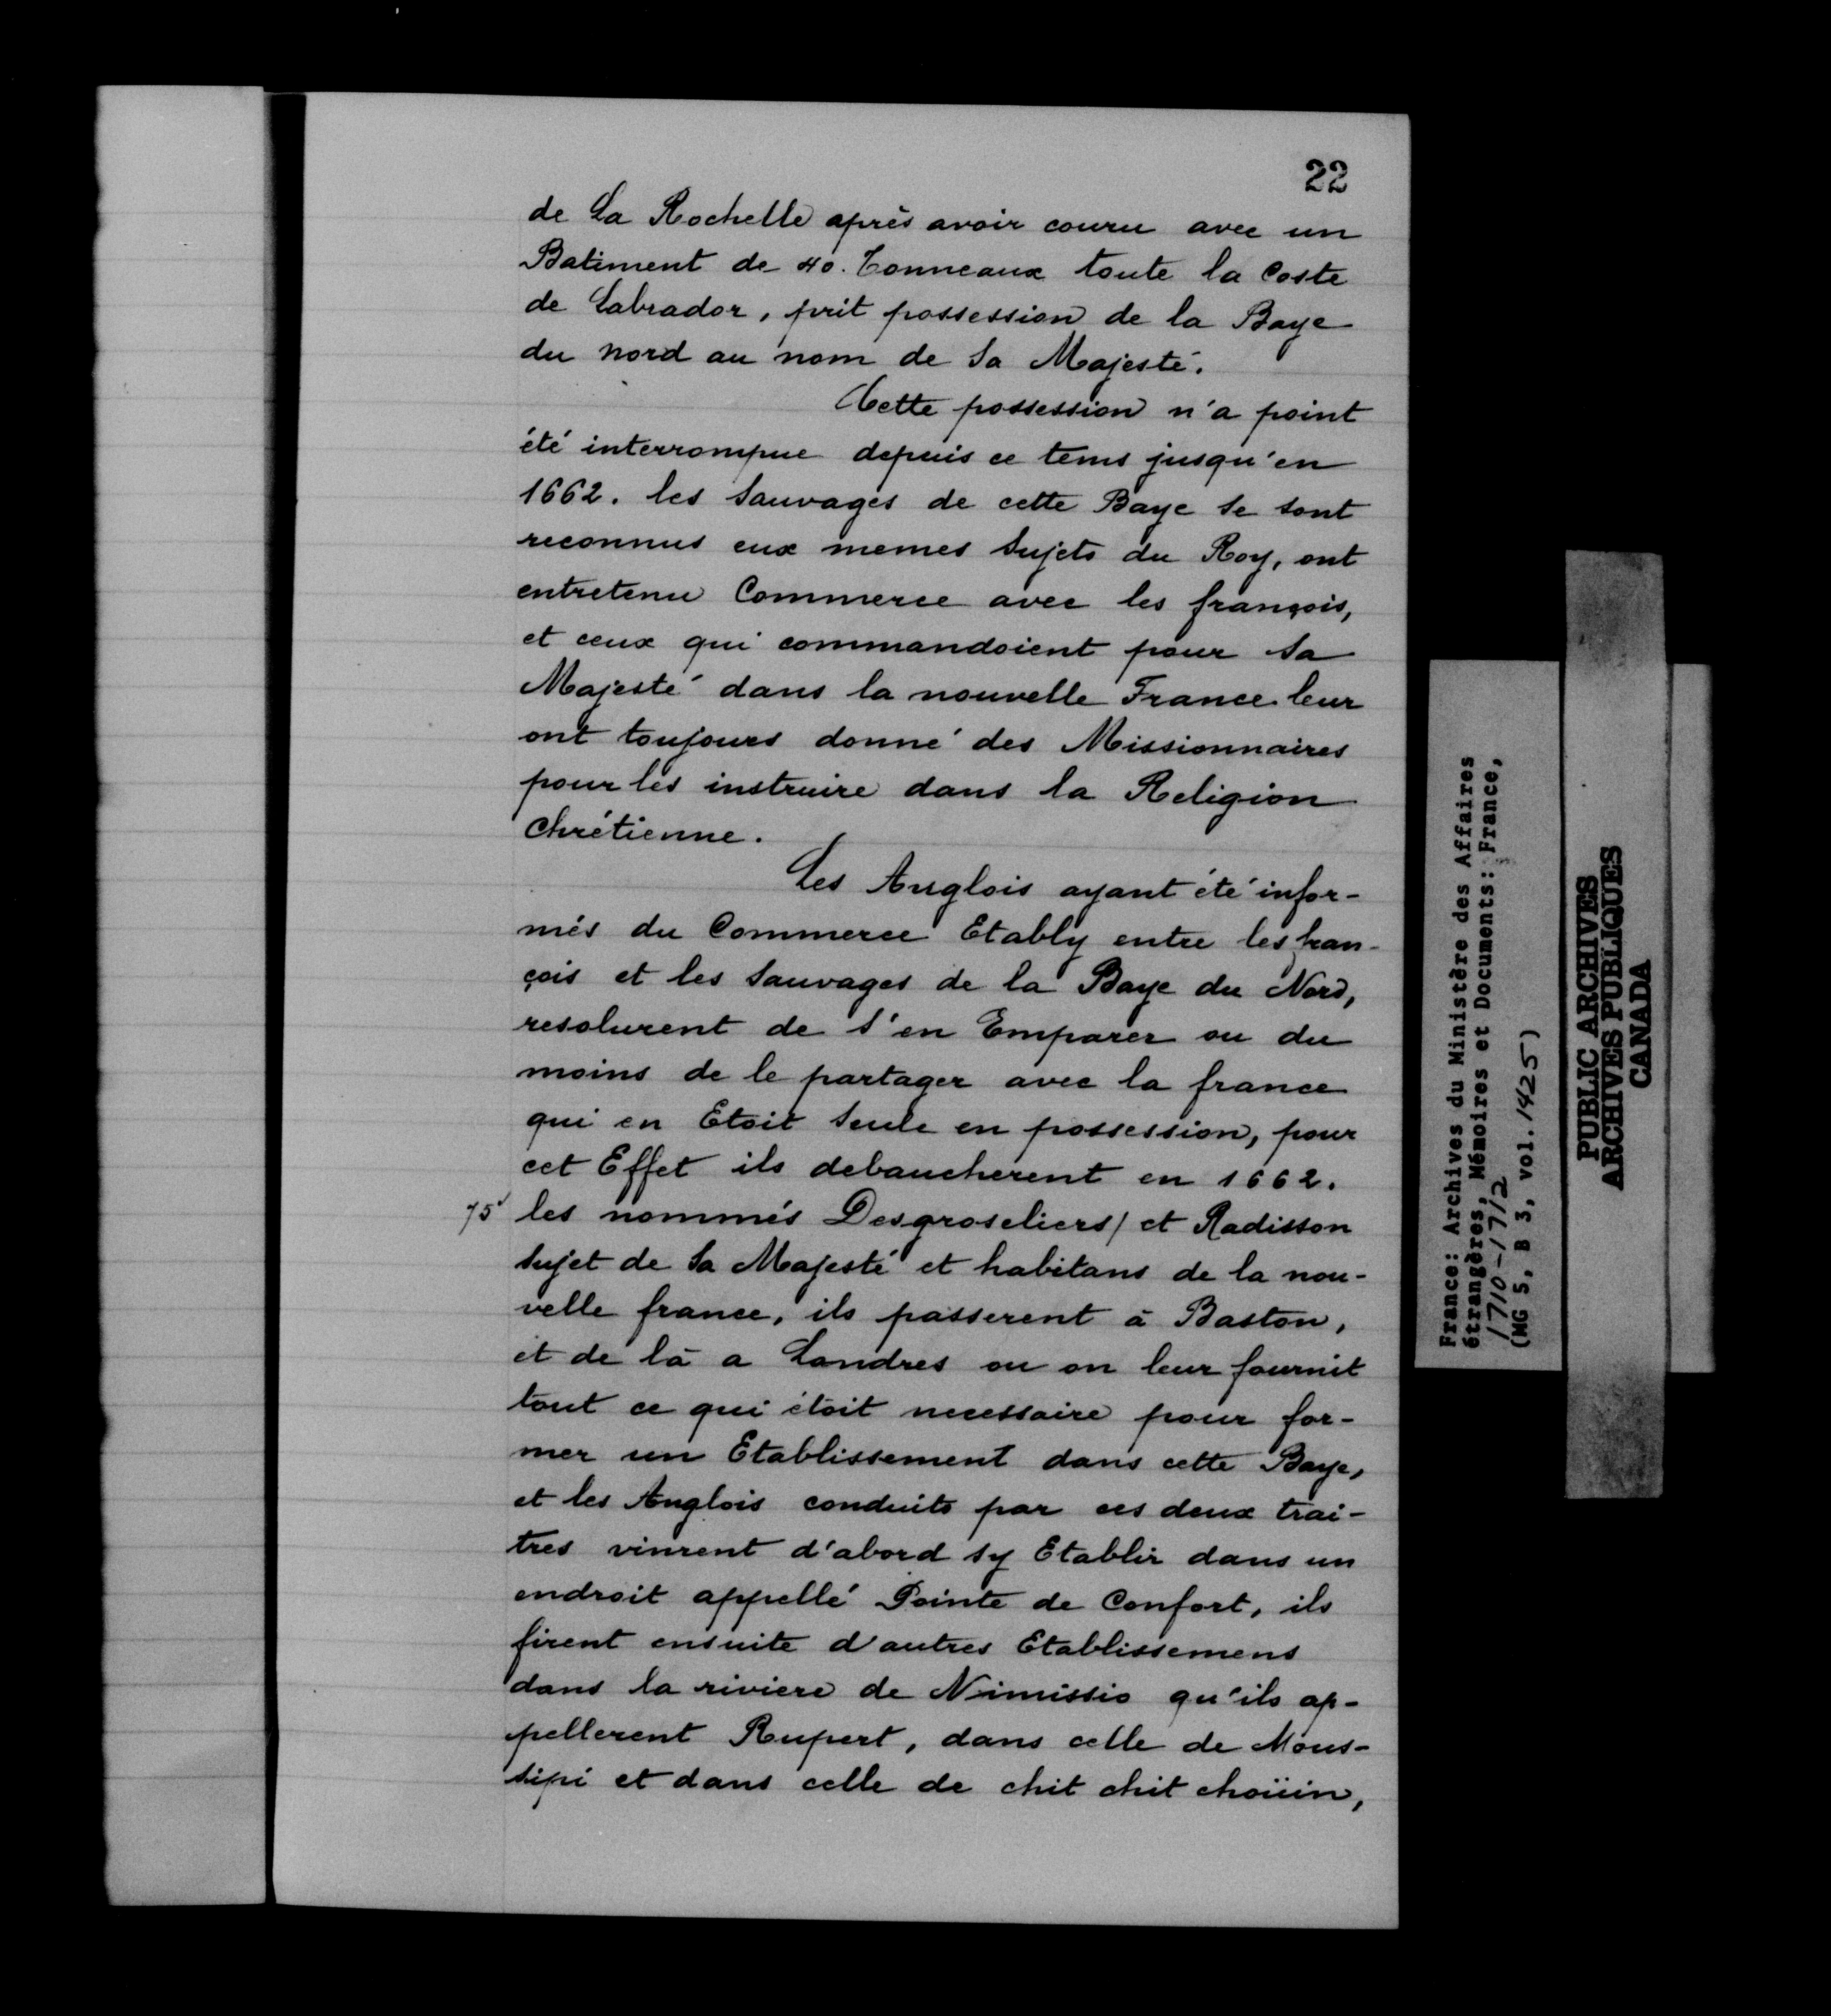 22
de La Rochelle après avoir couru avec un
Batiment de 40. Tonneaux toute la Coste
de Labrador, prit possession de la Baye
du nord au nom de Sa Majesté.
Cette possession n'a point
été interrompue depuis ce tems jusqu'en
1662. les Sauvages de cette Baye se sont
reconnus eux memes Sujets du Roy, ont
entretenu Commerce avec les françois,
et ceux qui commandoient pour Sa
Majesté dans la nouvelle France leur
ont toujours donné des Missionnaires
pour les instruire dans la Religion
chrétienne.
Les Anglois ayant été infor-
més du Commerce Etably entre les fran-
çois et les Sauvages de la Baye du Nord,
resolurent de s'en Emparer ou du
moins de le partager avec la france
qui en Etoit Seule en possession, pour
cet Effet ils debaucherent en 1662.
75 les nommés Desgroseliers/ et Radisson
Sujet de Sa Majesté et habitans de la nou-
velle france, ils passerent à Baston,
et de là a Londres ou on leur fournit
tout ce qui étoit necessaire pour for-
mer un Etablissement dans cette Baye,
et les Anglois conduits par ces deux trai-
tres vinrent d'abord sy Etablir dans un
endroit appellé Pointe de Confort, ils
firent ensuite d'autres Etablissemens
dans la riviere de Nimissio qu'ils ap-
pellerent Rupert, dans celle de Mous-
sipi et dans celle de chit chit choüin,
France: Archives du Ministère des Affaires
étrangères, Mémoires et Documents: France,
1710-1712
(MG 5, B 3, vol. 1425)
PUBLIC ARCHIVES
ARCHIVES PUBLIQUES
CANADA